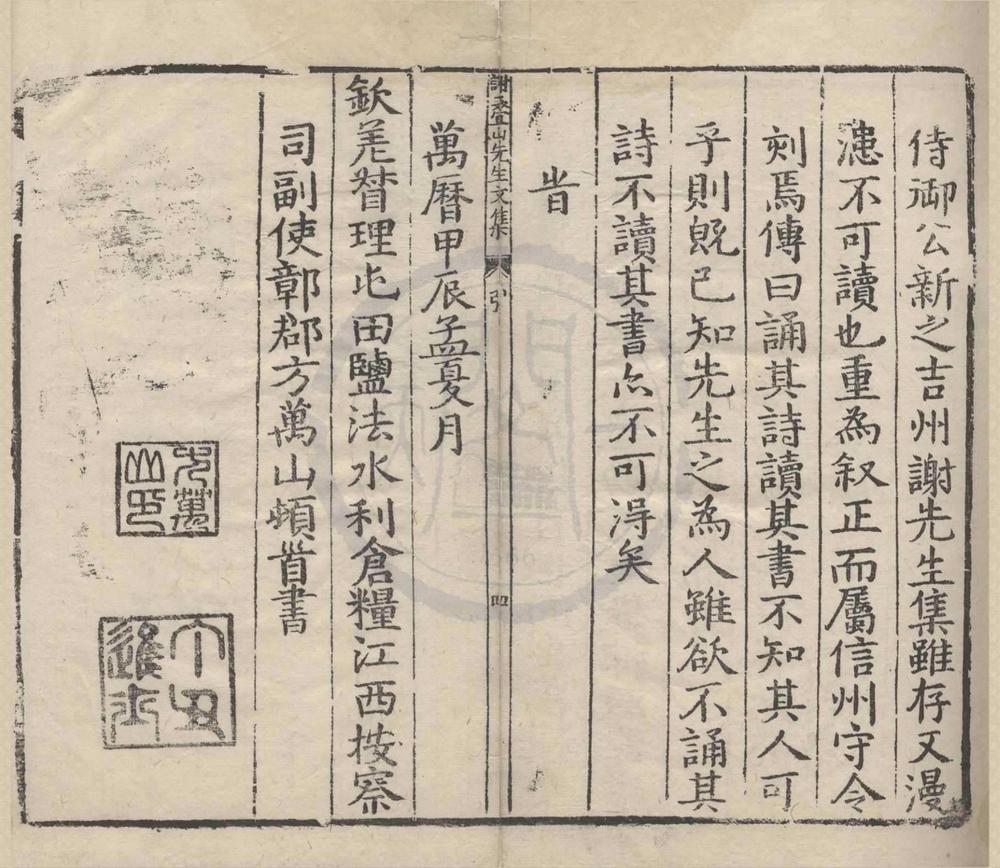 侍御公新之吉州謝先生集雖存又漫
漶不可讀也重為叙正而屬信州守令
刻焉傳曰誦其詩讀其書不知其人可
乎則既已知先生之為人雖欲不誦其
詩不讀其書亦不可得矣
旹
謝疊山先生文集 引 四
萬曆甲辰孟夏月
欽差督理屯田鹽法水利倉糧江西按察
司副使鄣郡方萬山頓首書
方萬山印
丁丑進士